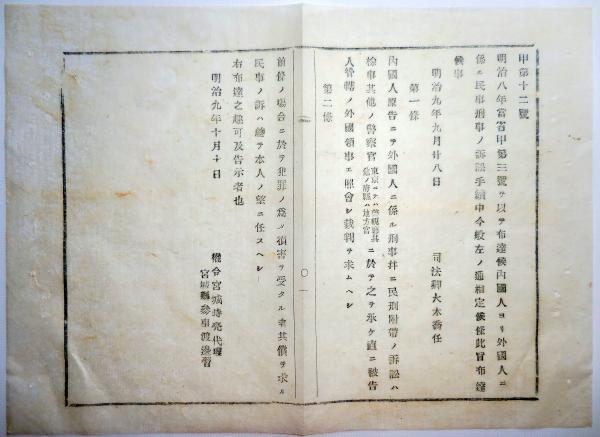 甲第十二號
明治八年當省甲第三號ヲ以テ布達候內國人ヨリ外國人ニ
係ル民事刑事ノ訴訟手續中今般左ノ通相定候條此旨布達
候事
明治九年九月廿八日
司法卿大木喬任
第一條
內國人原告ニテ外國人ニ係ル刑事并ニ民刑附帶ノ訴訟ハ
檢事其他ノ警察官東京ニテハ警視廳其他ノ府縣ハ地方官ニ於テ之ヲ承ケ直ニ被告
人管轄ノ外國領事ニ照會シ裁判ヲ求ムヘシ
第二條
前條ノ場合ニ於テ犯罪ノ爲メ損害ヲ受タル者其償ヲ求ル
民事ノ訴ハ總テ本人ノ望ニ任スヘシ
右布達之趣可及告示者也
明治九年十月十日
權令宮城時亮代理
宮城縣參事渡邊